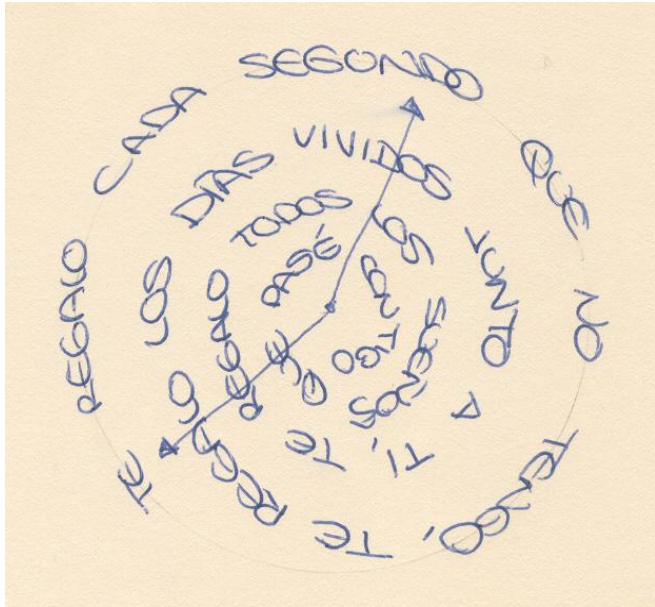 TE REGALO CADA SEGUNDO QUE NO TENGO,
TE REGALO LOS DÍAS VIVIDOS JUNTO A TI,
TE REGALO TODOS LOS SUEÑOS
QUE PASÉ CONTIGO